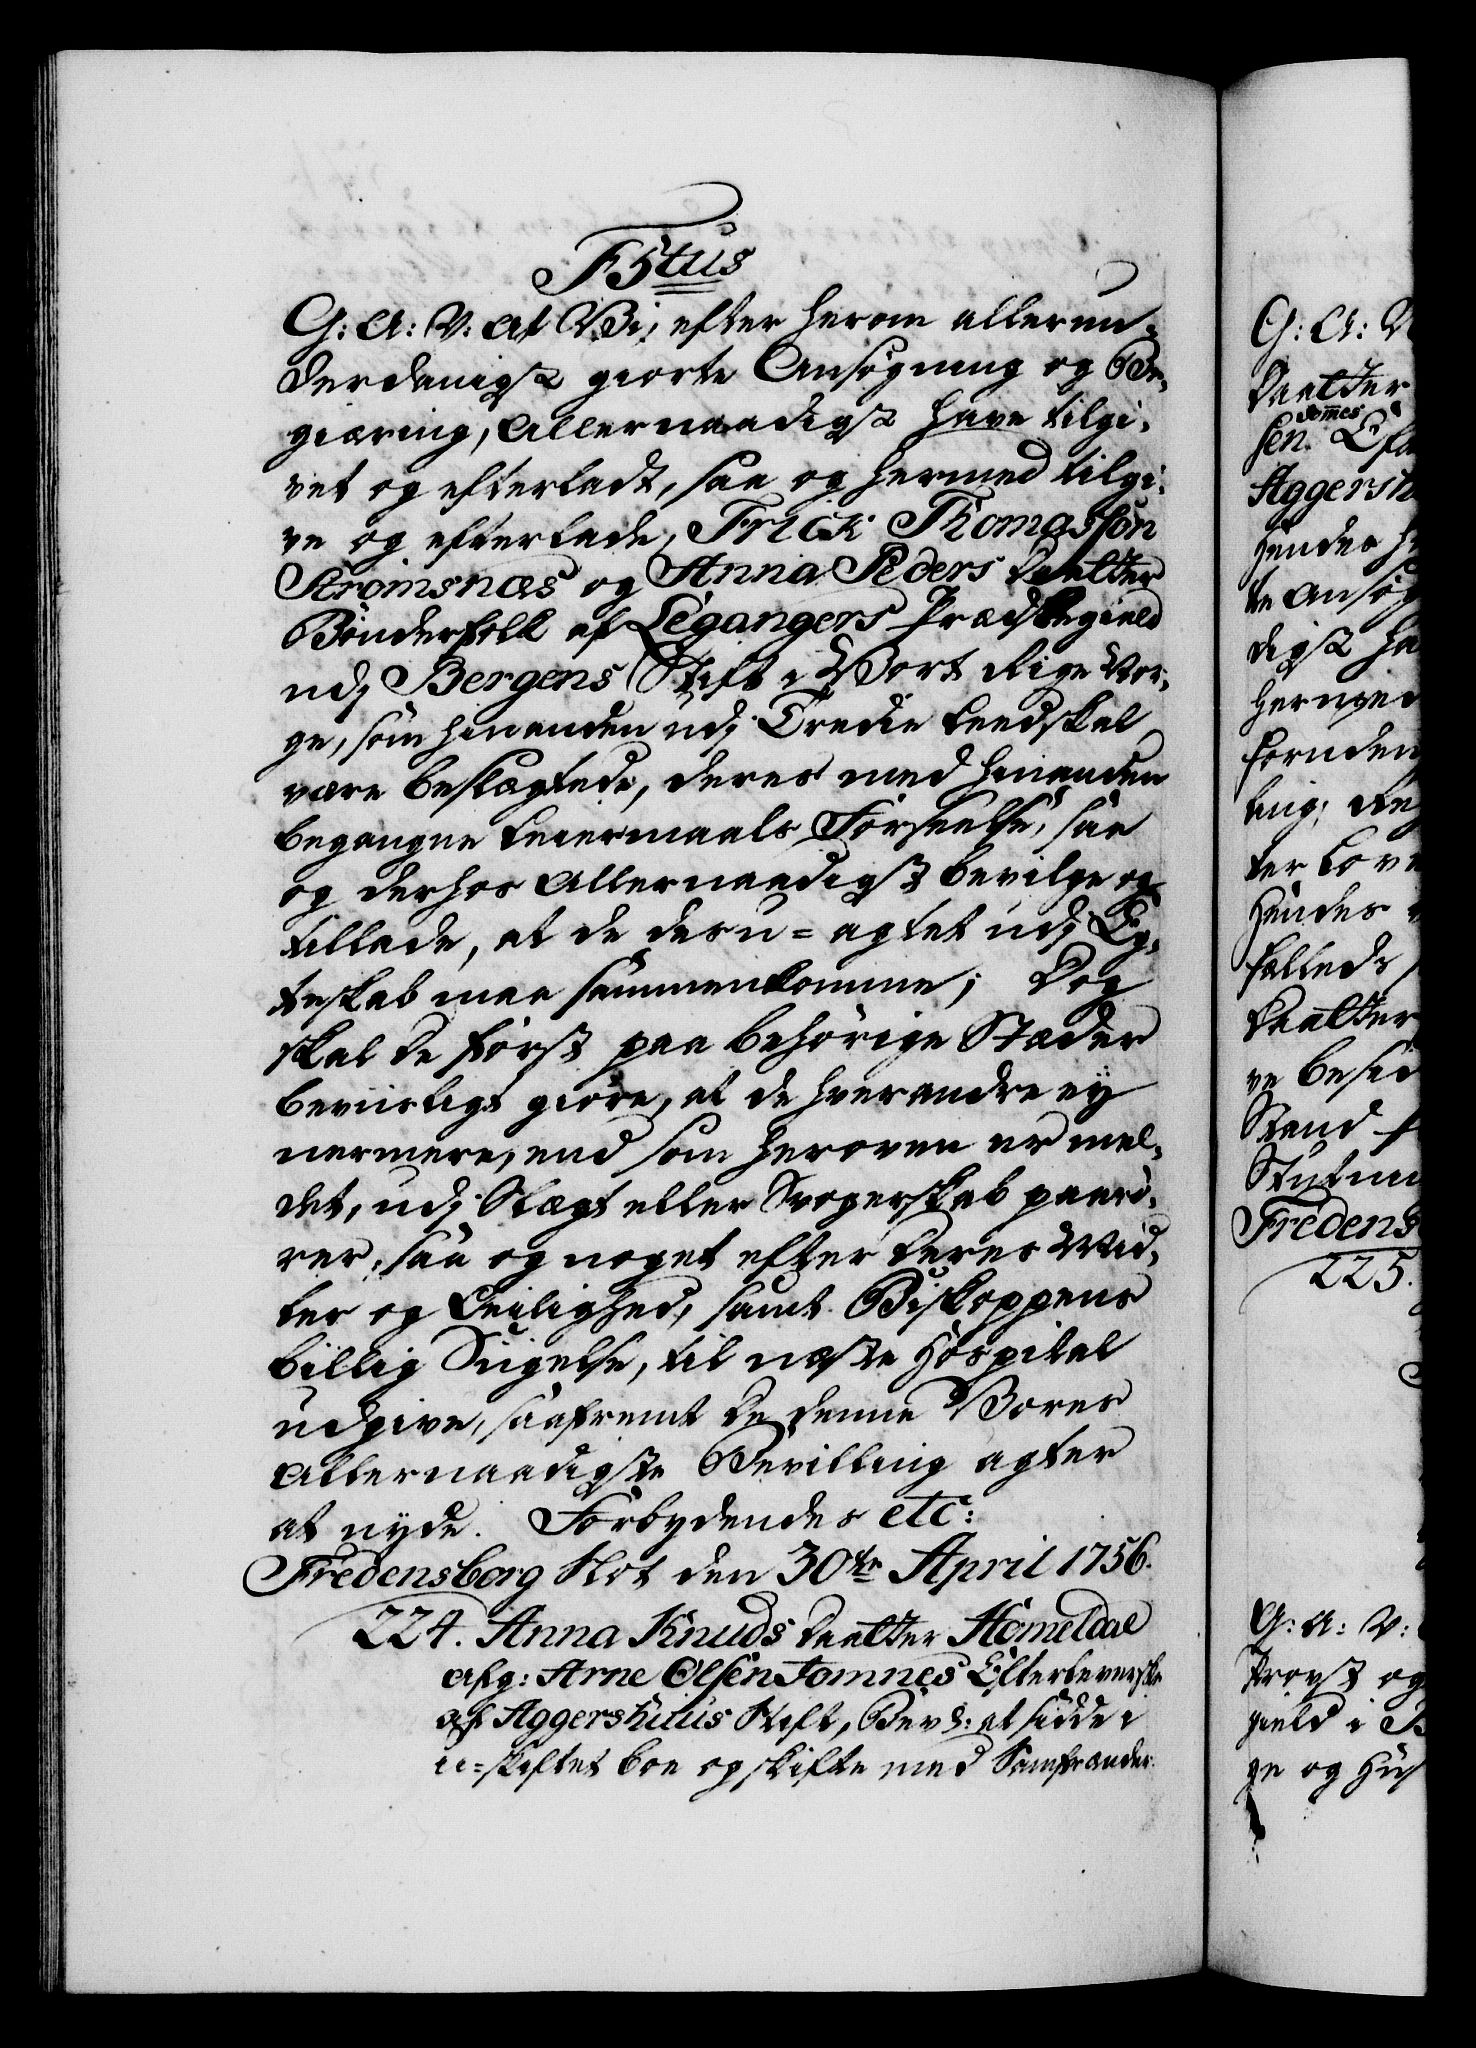 F5tus
G: A: V: at Vi, efter herom allerun-
derdanigst giorte Ansøgning og Be-
giæring, Allernaadigst have tilgi-
vet og efterladt, saa og hermed tilgi-
ve og efterlade, Frick Thomassøn
Strømsnæs og Anna Peders Daatter
Bønderfolk af Leganger Præstegield
udj Bergens Stift i Vort Rige Nor-
ge, som hinanden udj Tredie Leed skal
være beslægtede, deres med hinanden
begangne Leiermaals Forseelse, saa
og derhos Allernaadigst bevilge og
tillade, at de deru=agtet udj Eg-
teskab maa sammenkomme; Dog
skal de først paa behørige Stæder
beviisligt giøre, at de hverandre ey
nermere, end som heroven er mel-
det, udj Slægt eller Svogerskab paarø-
rer, saa og noget efter deres Mid-
ler og Leilighed, samt Biskoppens
billig Sigelse, til næste Hospital
udgive, saafremt de denne Vores
Allernaadigste Bevilling agter
at nyde. Forbydendes etc:
Fredensborg Slot den 30te April 1756.
224. Anna Knuds Daatter Homeldal
afg: Arne Olsen Tomnes Efterleverske
af Aggershuus Stift, Bev: at sidde i
u=skiftet boe og skifte med Samfrænder.
G: A: V
Daatter
Tomes
sen. Efe
Aggersh
Hendes h
te Ansøg
digst ha
hermed
ter Lov
Hendes
fælleds
Daatter
ve besid
Stand f
Fredens
225.
G: A: V:
Provst og
gield i B
ge og Hus